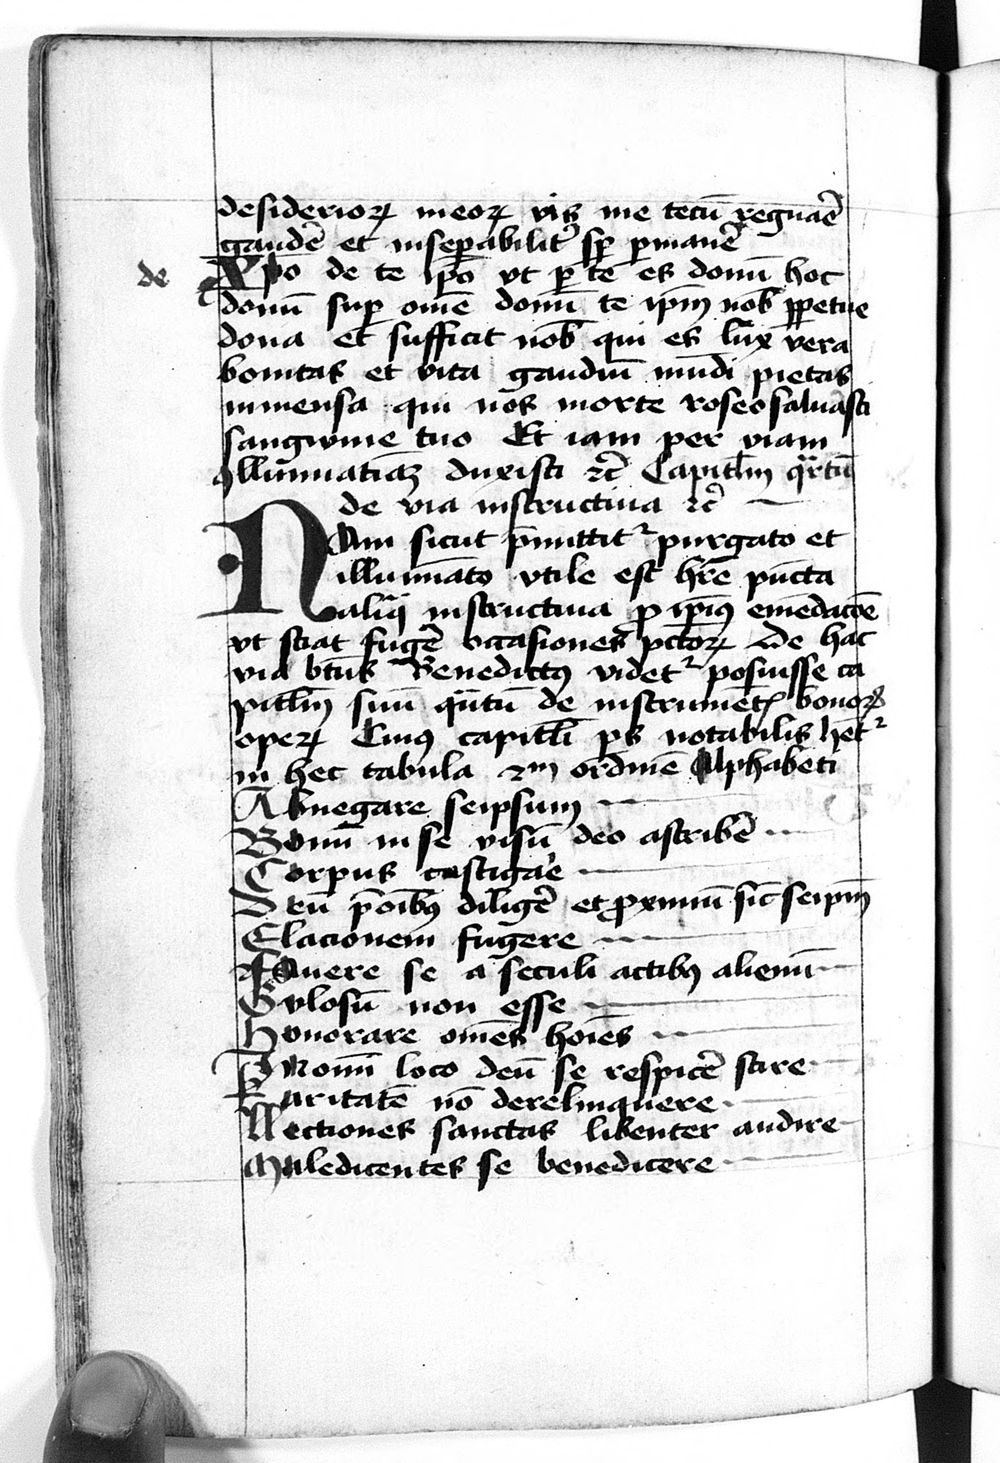 desiderioꝝ meoꝝ vis me tecū regnaē
gaudē et inseꝑabilit̉ sꝑ ꝑmanē
de Xp̄o de te ip̄o vt ꝑ te es donū hoc
donū suꝑ om̄e donū te ip̄m nob̄ ꝑpetue
dona et sufficit nob̄ qui es lux vera
bonitas et vita gaudiū mūdi pietas
inmensa qui nos morte roseo saluasti
sangwine tuo Et iam per viam
Jllūinatiuā duxisti ⁊c̄ Capitl̄m qͣrtū
de via instructiua ⁊c̄
Nam sicut p̄mittit᷑ purgato et
illumīato vtile est hr̄e pūcta
aliq̄ instructiua ꝓ ip̄iꝰ emēdacōe
vt sciat fugē occasiones pctōꝝ de hac
via bt̄us Benedictꝰ videt᷑ posuisse ca
pitl̄m suū qͣrtū de instrumētꝭ bonoꝝ
opeꝝ Cuiꝰ capitl̄i ps notabilis het᷑
in hec tabula ⁊m ordinē Alphabeti
Abnegare seipsum
Bonū in se visū deo ascribē
Corpus castigaē
Deū p̄ oībꝰ diligē et ꝓximū sic̄ seip̄m
Elacionem fugere
Facere se a seculi actibꝰ alienū
Gulosū non esse
Honorare om̄es hoīes
In om̄i loco deū se respicē scire
Karitatē nō derelinquere
Lectiones sanctas libenter audire
Maledicentes se benedicere